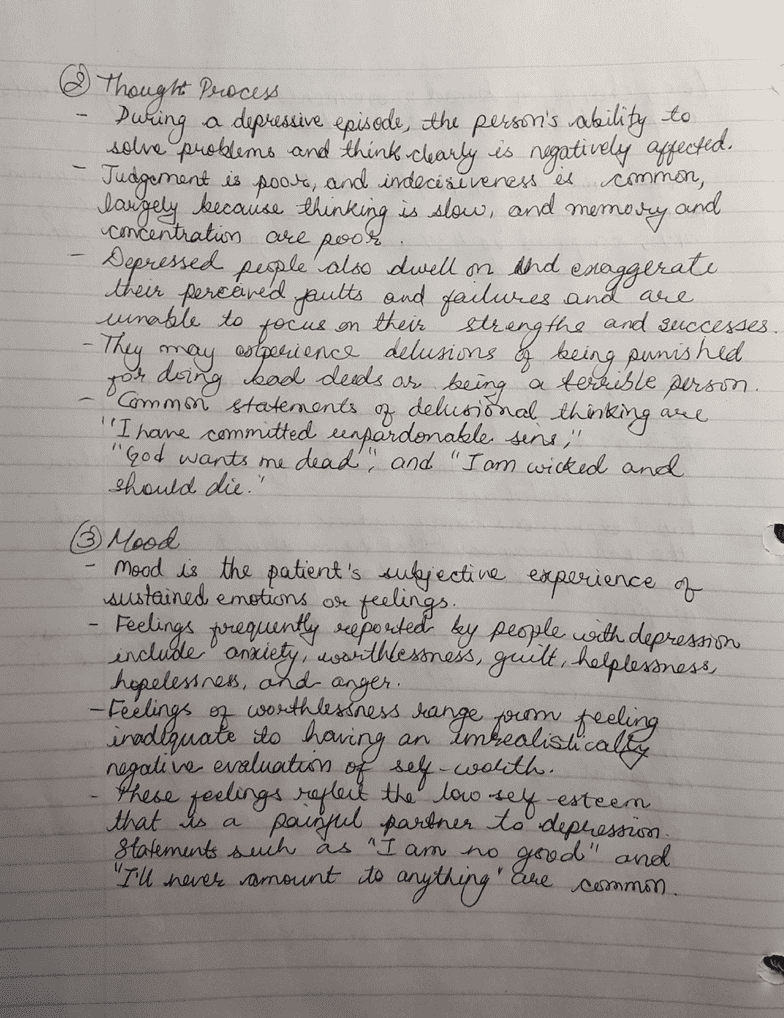 ② Thought Process
- During a depressive episode, the person's ability to
solve problems and think clearly is negatively affected.
- Judgement is poor, and indecisiveness is common,
largely because thinking is slow, and memory and
concentration are poor.
- Depressed people also dwell on and exaggerate
their perceived faults and failures and are
unable to focus on their strengths and successes.
- They may experience delusions of being punished
for doing bad deeds or being a terrible person.
- Common statements of delusional thinking are
"I have committed unpardonable sins,"
"God wants me dead", and "I am wicked and
should die."
③ Mood
- Mood is the patient's subjective experience of
sustained emotions or feelings.
- Feelings frequently reported by people with depression
include anxiety, worthlessness, guilt, helplessness,
hopelessness, and anger.
- Feelings of worthlessness range from feeling
inadequate to having an unrealistically
negative evaluation of self-worth.
- These feelings reflect the low self-esteem
that is a painful partner to depression.
Statements such as "I am no good" and
"I'll never amount to anything" are common.